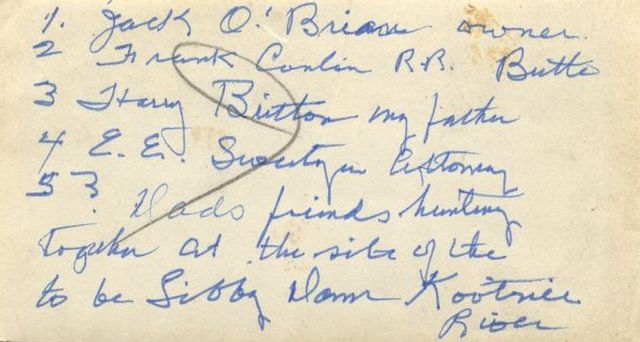 1. Jack O'Brian owner.
2 Frank Conlin R.R. Butte
3 Harry Britton my father
4 E. E. Attorney
5 ?
Dads friends hunting
together at the site of the
to be Libby Damn Kootnie
River